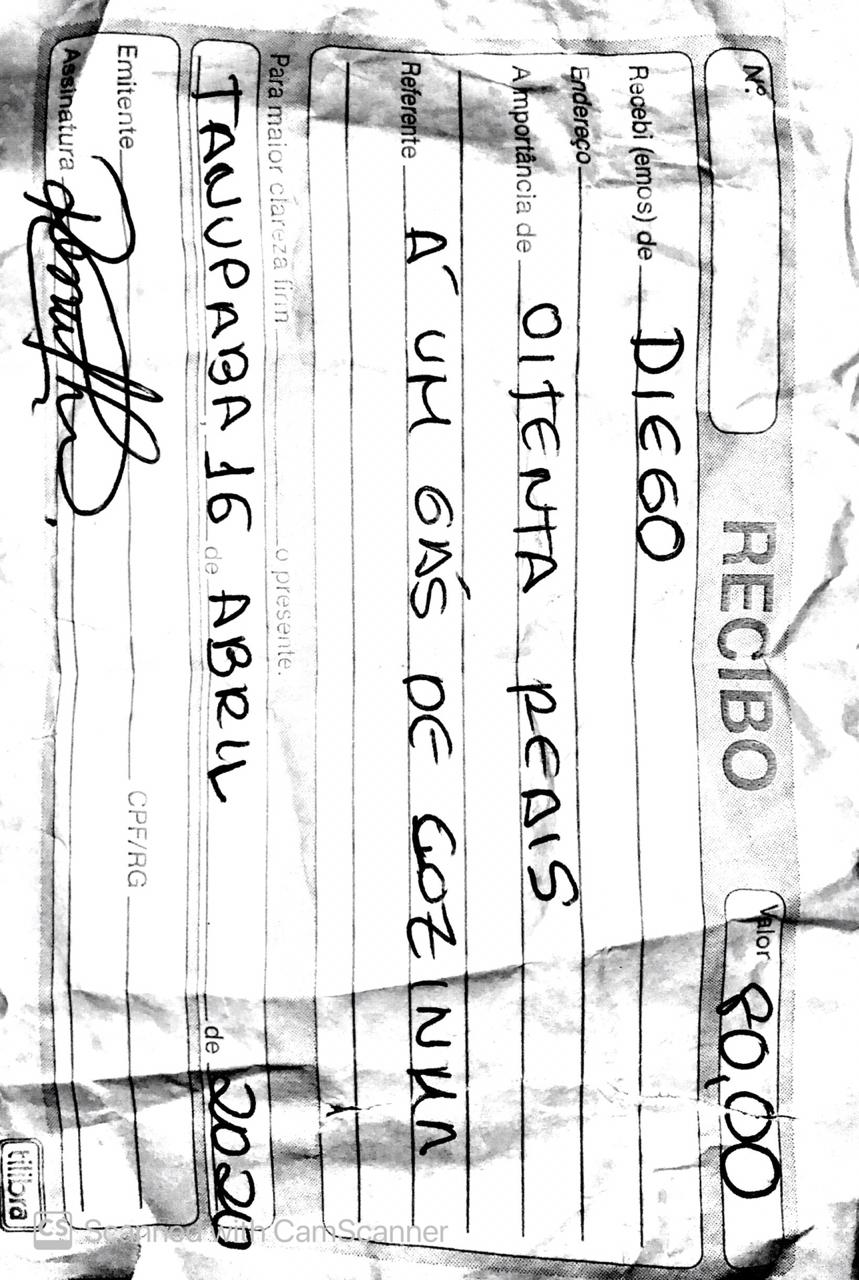 RECIBO
Nº
Valor 80,00
Recebi (emos) de DIEGO
Endereço
A importância de OITENTA REAIS
Referente A´ UM GÁS DE COZINHA
Para maior clareza firm o presente.
TANUPABA, 16 de ABRIL de 2020
Emitente CPF/RG
Assinatura
tilibra
CS Scanned with CamScanner